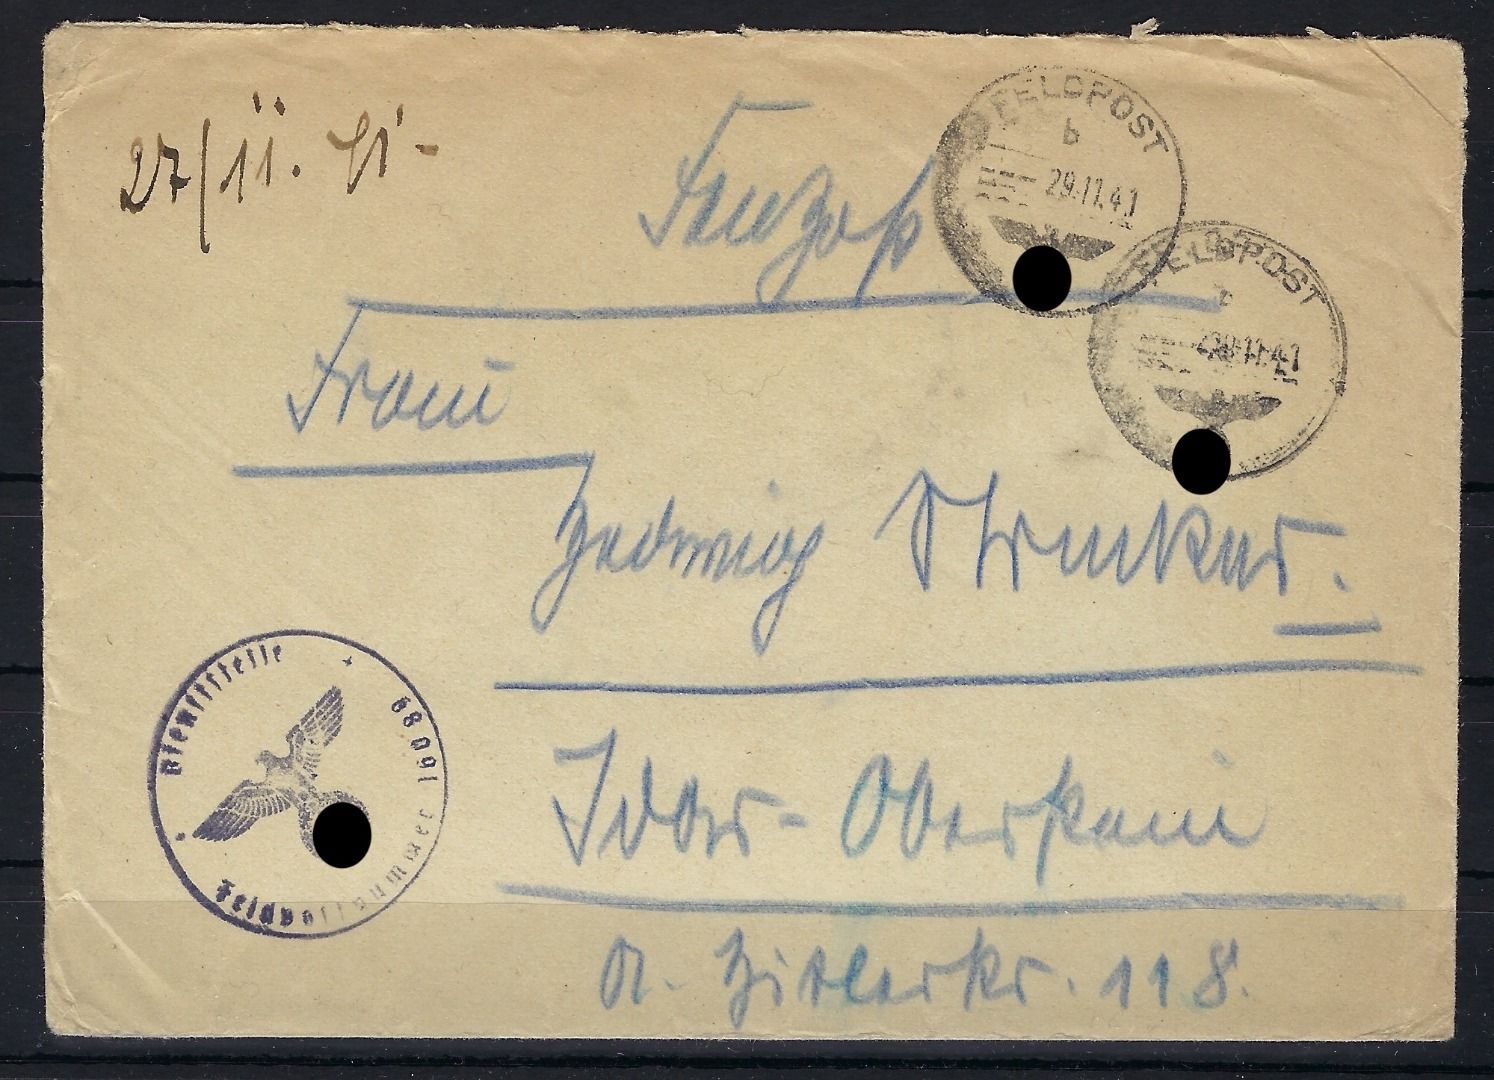 27/11. 41-
Feldpost
FELDPOST
b
29.11.41
FELDPOST
b
29.11.41
Frau
Hedwig Strunker.
Dienststelle
Feldpostnummer
Idar-Oberstein
A. Hitlerstr. 118.